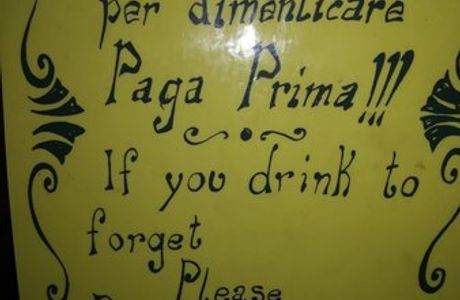 per dimenticare
Paga Prima!!!
If you drink to
forget
Please